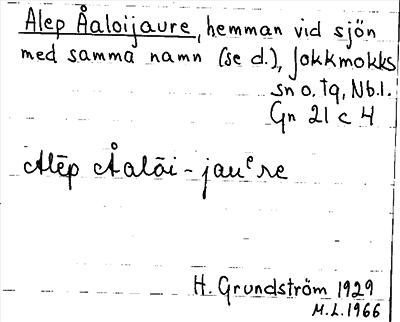 Alep Åaloijaure, hemman vid sjön
med samma namn (se d.), Jokkmokks
sn o. tg, Nb.l.
Gn 21 c 4
Alēp Åalōi-jauᵉre
H. Grundström 1929
M.L. 1966